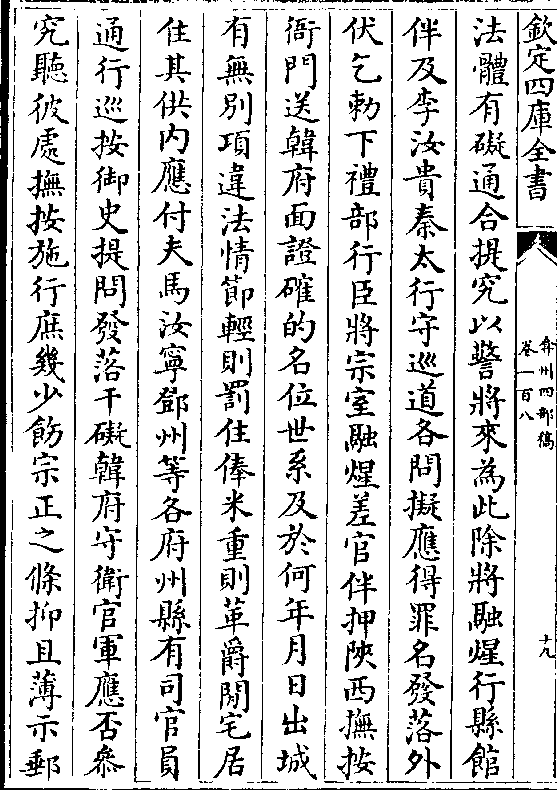 欽定四庫全書
弇州四部稿
卷一百八
十九
法體有礙通合提究以警將來為此除將融煋行縣館
伴及李汝貴秦太行守巡道各問擬應得罪名發落外
伏乞勅下禮部行臣將宗室融煋差官伴押陜西撫按
衙門送韓府面證確的名位世系及於何年月日出城
有無別項違法情節輕則罰住俸米重則革爵閒宅居
住其供内應付夫馬汝寧鄧州等各府州縣有司官員
通行巡按御史提問發落干礙韓府守衛官軍應否叅
究聽彼處撫按施行庶幾少飭宗正之條抑且薄示郵